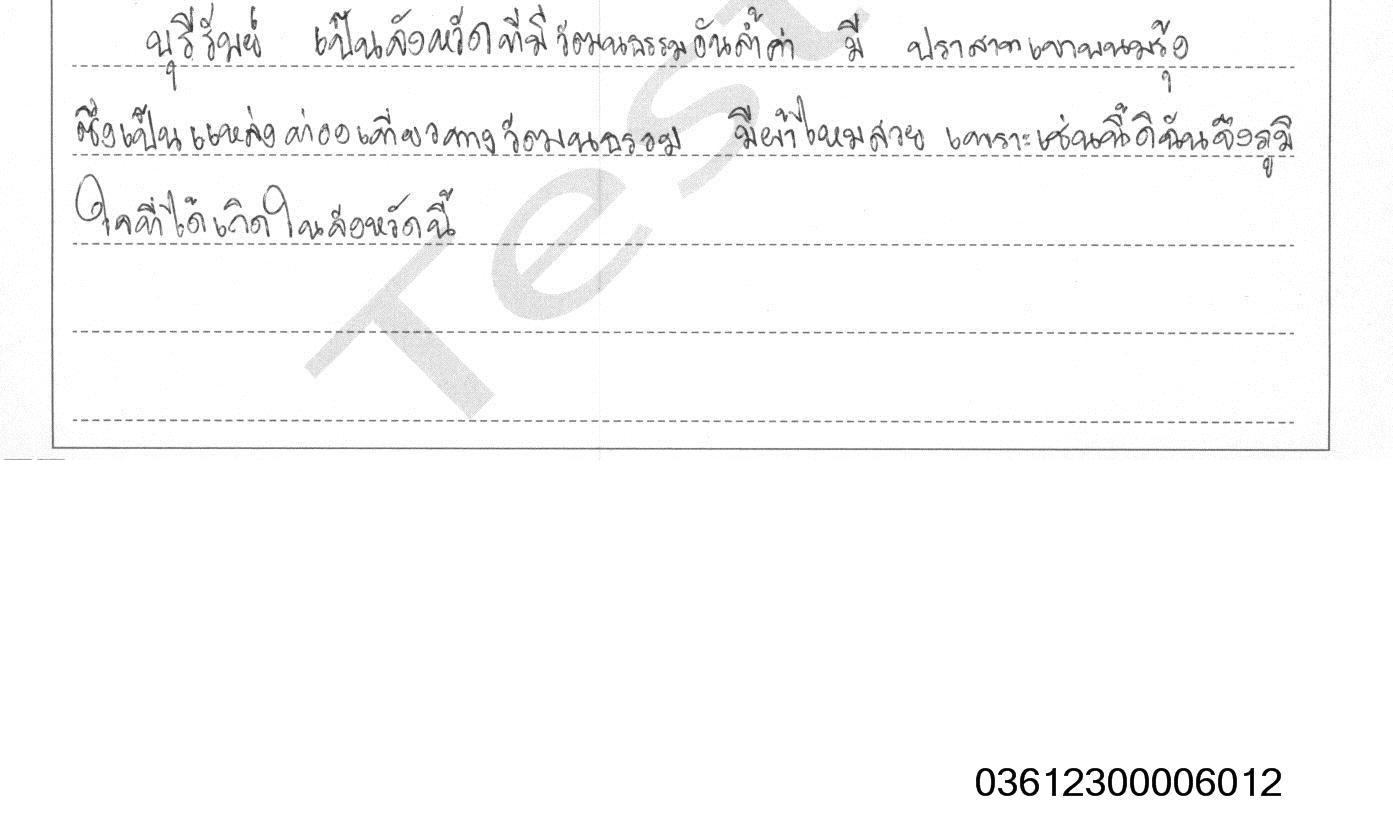 บุรีรัมย์ เป็นจังหวัดที่มีวัฒนธรรมอันล้ำค่า มี ปราสาทเขาพนมรุ้ง
ซึ่งเป็นแหล่งท่องเที่ยวทางวัฒนธรรม มีผ้าไหมสวย เพราะเช่นนี้ดิฉันจึงภูมิ
ใจที่ได้เกิดในจังหวัดนี้
Test
03612300006012